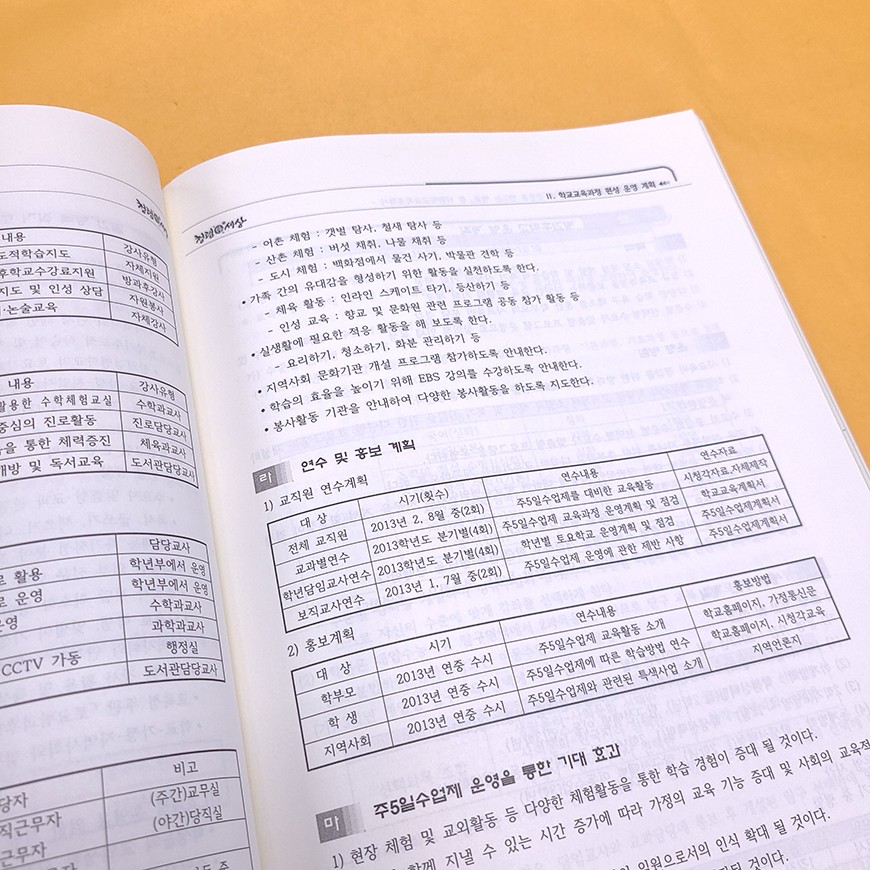 내용
강사유형
도적학습지도
자체지원
후학교수강료지원
방과후강사
지도 및 인성 상담
자원봉사
·논술교육
자체강사
내용
강사유형
활용한 수학체험교실
수학과교사
중심의 진로활동
진로담당교사
을 통한 체력증진
체육과교사
개방 및 독서교육
도서관담당교사
담당교사
로 활용
학년부에서 운영
로 운영
학년부에서 운영
운영
수학과교사
과학과교사
CCTV 가동
행정실
도서관담당교사
비고
당자
(주간)교무실
직근무자
(야간)당직실
근무자
II. 학교교육과정 편성 운영 계획
- 어촌 체험 : 갯벌 탐사, 철새 탐사 등
- 산촌 체험 : 버섯 채취, 나물 채취 등
- 도시 체험 : 백화점에서 물건 사기, 박물관 견학 등
• 가족 간의 유대감을 형성하기 위한 활동을 실천하도록 한다.
- 체육 활동 : 인라인 스케이트 타기, 등산하기 등
- 인성 교육 : 향교 및 문화원 관련 프로그램 공동 참가 활동 등
• 실생활에 필요한 적응 활동을 해 보도록 한다.
- 요리하기, 청소하기, 화분 관리하기 등
• 지역사회 문화기관 개설 프로그램 참가하도록 안내한다.
• 학습의 효율을 높이기 위해 EBS 강의를 수강하도록 안내한다.
• 봉사활동 기관을 안내하여 다양한 봉사활동을 하도록 지도한다.
라 연수 및 홍보 계획
1) 교직원 연수계획
대 상 시기(횟수) 연수내용 연수자료
전체 교직원 2013년 2, 8월 중(2회) 주5일수업제를 대비한 교육활동 시청각자료,자체제작
교과별연수 2013학년도 분기별(4회) 주5일수업제 교육과정 운영계획 및 점검 학교교육계획서
학년담임교사연수 2013학년도 분기별(4회) 학년별 토요학교 운영계획 및 점검 주5일수업제계획서
보직교사연수 2013년 1, 7월 중(2회) 주5일수업제 운영에 관한 제반 사항 주5일수업제계획서
2) 홍보계획
대 상 시기 연수내용 홍보방법
학부모 2013년 연중 수시 주5일수업제 교육활동 소개 학교홈페이지, 가정통신문
학 생 2013년 연중 수시 주5일수업제에 따른 학습방법 연수 학교홈페이지, 시청각교육
지역사회 2013년 연중 수시 주5일수업제와 관련된 특색사업 소개 지역언론지
마 주5일수업제 운영을 통한 기대 효과
1) 현장 체험 및 교외활동 등 다양한 체험활동을 통한 학습 경험이 증대 될 것이다.
함께 지낼 수 있는 시간 증가에 따라 가정의 교육 기능 증대 및 사회의 교육적
일원으로서의 인식 확대 될 것이다.
될 것이다.